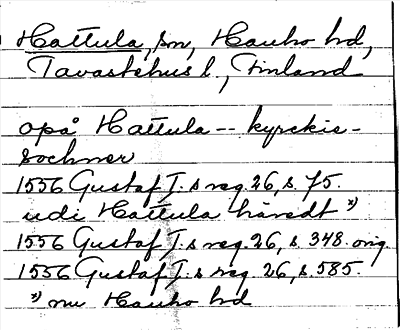 Hattula, sn, Hauho hd,
Tavastehus l., Finland
opå Hattula -- kyrckie-
sochner
1556 Gustaf I:s reg. 26, s. 75.
udi Hattula häredt *)
1556 Gustaf I:s reg. 26, s. 348. orig.
1556 Gustaf I:s reg. 26, s. 585.
*) nu Hauho hd